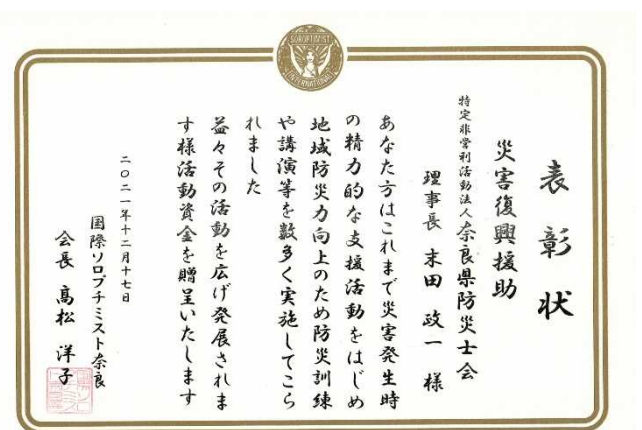 SOROPTIMIST
INTERNATIONAL
表彰状
災害復興援助
特定非営利活動法人奈良県防災士会
理事長 末田 政一 様
あなた方はこれまで災害発生時
の精力的な支援活動をはじめ
地域防災力向上のため防災訓練
や講演等を数多く実施してこら
れました
益々その活動を広げ発展されま
す様活動資金を贈呈いたします
二〇二一年十二月十七日
国際ソロプチミスト奈良
会長 髙松 洋子